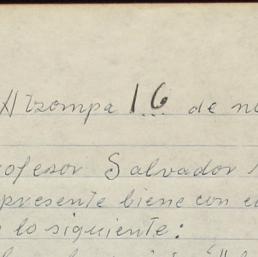 Atzompa 16 de no
ofesor Salvador
presente biene con el
lo siguiente: